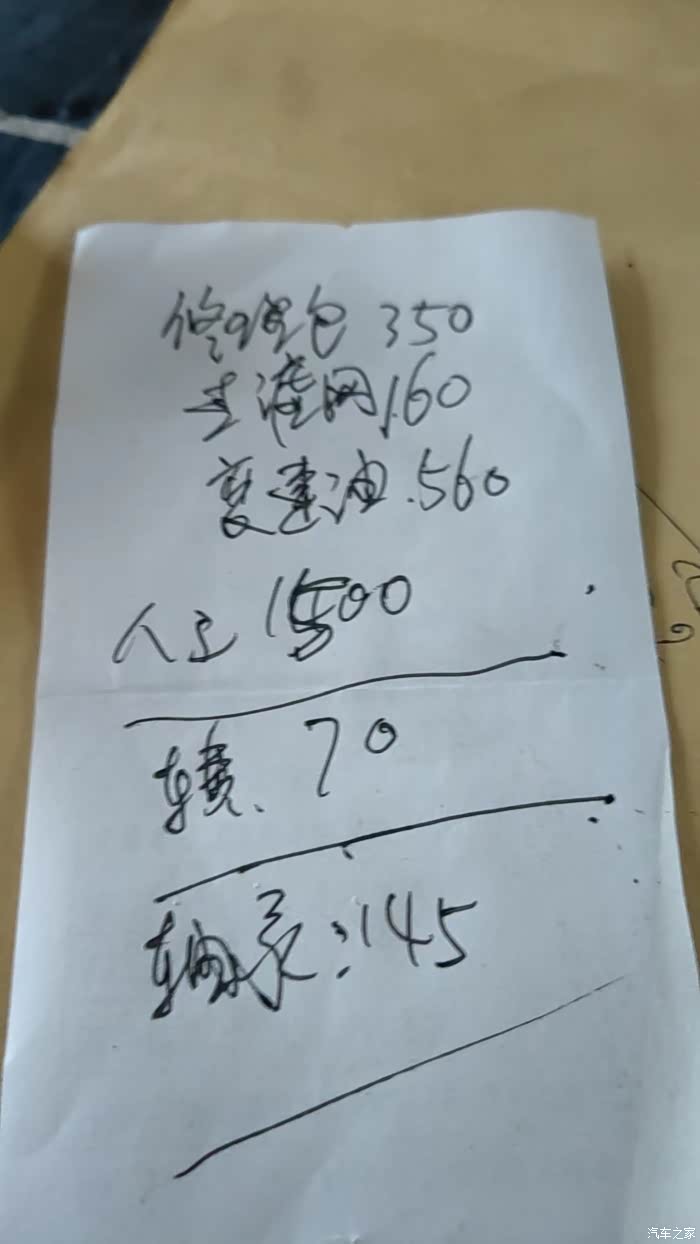 修理包 350
主滤网160
变速油.560
人工 1500
车费、70
轴承:145
汽车之家